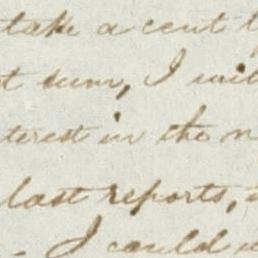 take a cent
t sum, I wil
terest in the
last reports,
I could